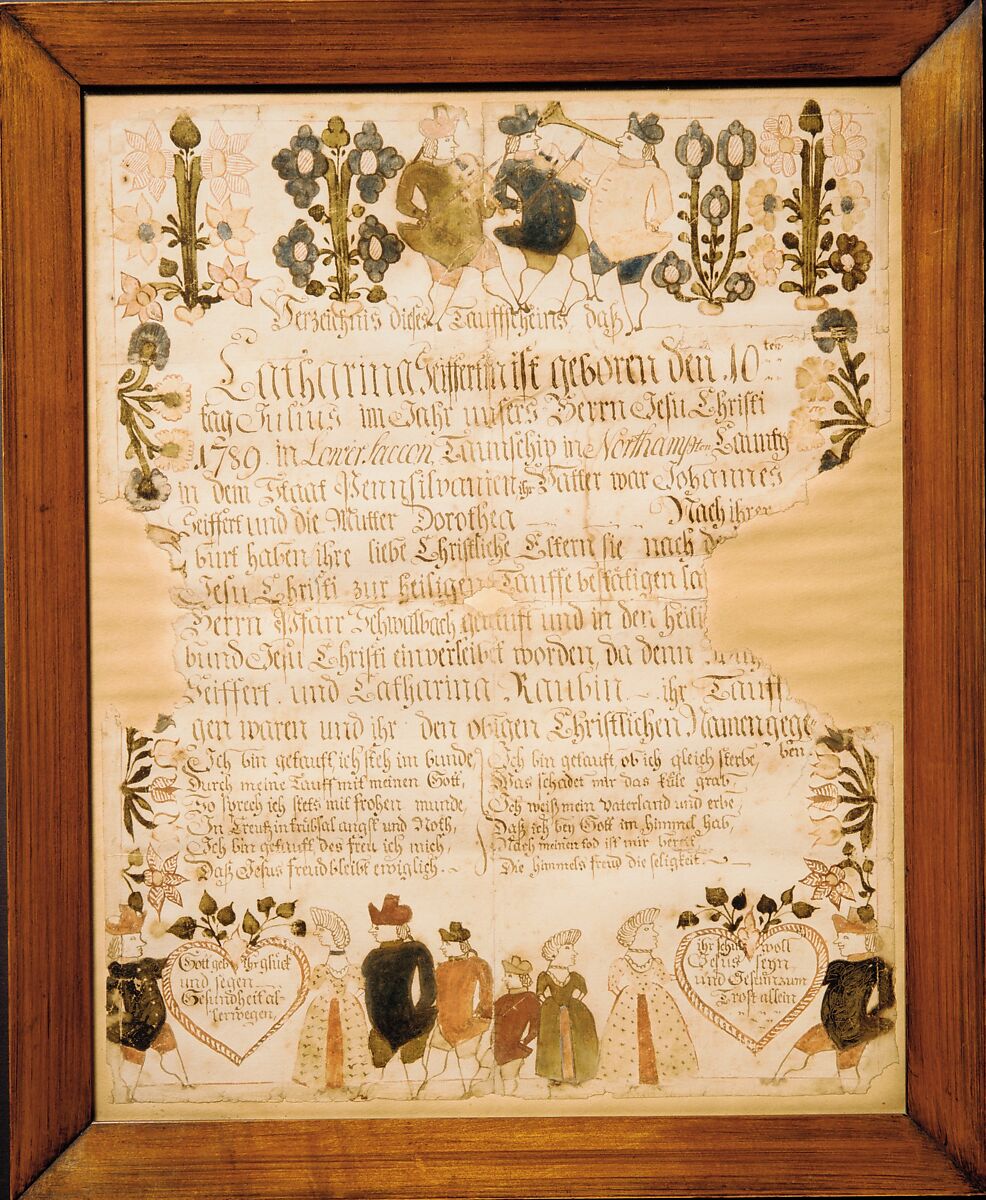 Verzeichnis dieses Taufscheins, daß
Catharina Seiffertin ist geboren den 10ten
tag Julius im Jahr unsers Herrn Jesu Christi
1789. in Lower Saccon Taunschip in Northampton Caunty
in dem Staat Pennsilvanien ihr Vatter war Johannes
Seiffert und die Mutter Dorothea Nach ihrer
burt haben ihre liebe Christliche Eltern sie nach
Jesu Christi zur heiligen Tauffe bestätigen
Herrn Pfarr Schwalbach getauft und in den
bund Jesu Christi einverleibet worden, da denn
Seiffert und Catharina Raubin ihr Tauff
gen waren und ihr den obigen Christlichen Namen gege=
ben.
Ich bin getauft ich steh im bunde,
Durch meine Tauff mit meinen Gott,
So sprech ich stets mit frohen munde,
In Creutz in trübsal angst und Noth,
Ich bin getauft des freu ich mich,
Daß Jesus freud bleibt ewiglich.
Ich bin getauft ob ich gleich sterbe,
Was schadet mir das küle grab,
Ich weiß mein Vaterland und erbe,
Daß ich bey Gott im himmel hab,
Nach meinen tod ist mir bereit,
Die himmels freud die seligkeit.
Gott geb Ihr glück
und segen
Gesundheit al=
lerwegen,
ihr schutz woll
Jesus seyn,
und Gestirn zum
Trost allein